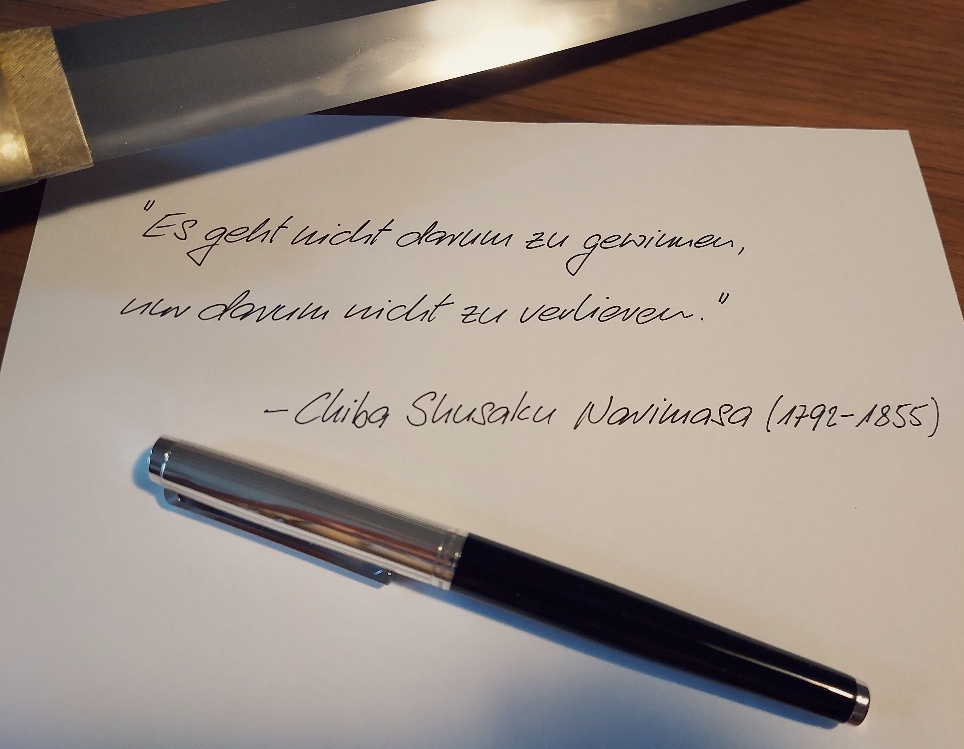 "Es geht nicht darum zu gewinnen,
nur darum nicht zu verlieren."
– Chiba Shusaku Narimasa (1792-1855)